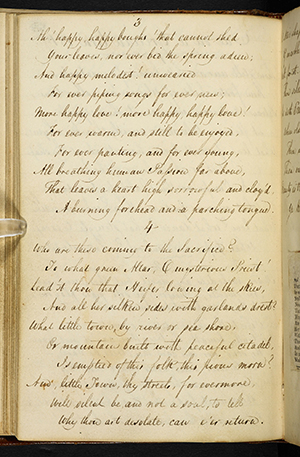 3
Ah! happy, happy boughs! that cannot shed
Your leaves, nor ever bid the spring adieu;
And happy melodist! unwearied
For ever piping songs for ever new;
More happy love! more happy happy love!
For ever warm, and still to be enjoyed.
For ever panting, and for ever young;
All breathing human Passion far above,
That leaves a heart high sorrowful and cloy'd
A burning forehead and a parching tongue.
4
Who are these coming to the Sacrifice?
To what green Altar, O mysterious Priest!
Lead'st thou that Heifer lowing at the skies,
And all her silken sides with garlands drest?
What little town, by river or sea shore,
Or mountain built with peaceful citadel,
Is emptied of this folk, this pious morn?
And, little Town, thy streets, for evermore,
Will silent be, and not a soul, to tell
Why thou art desolate, can e'er return.